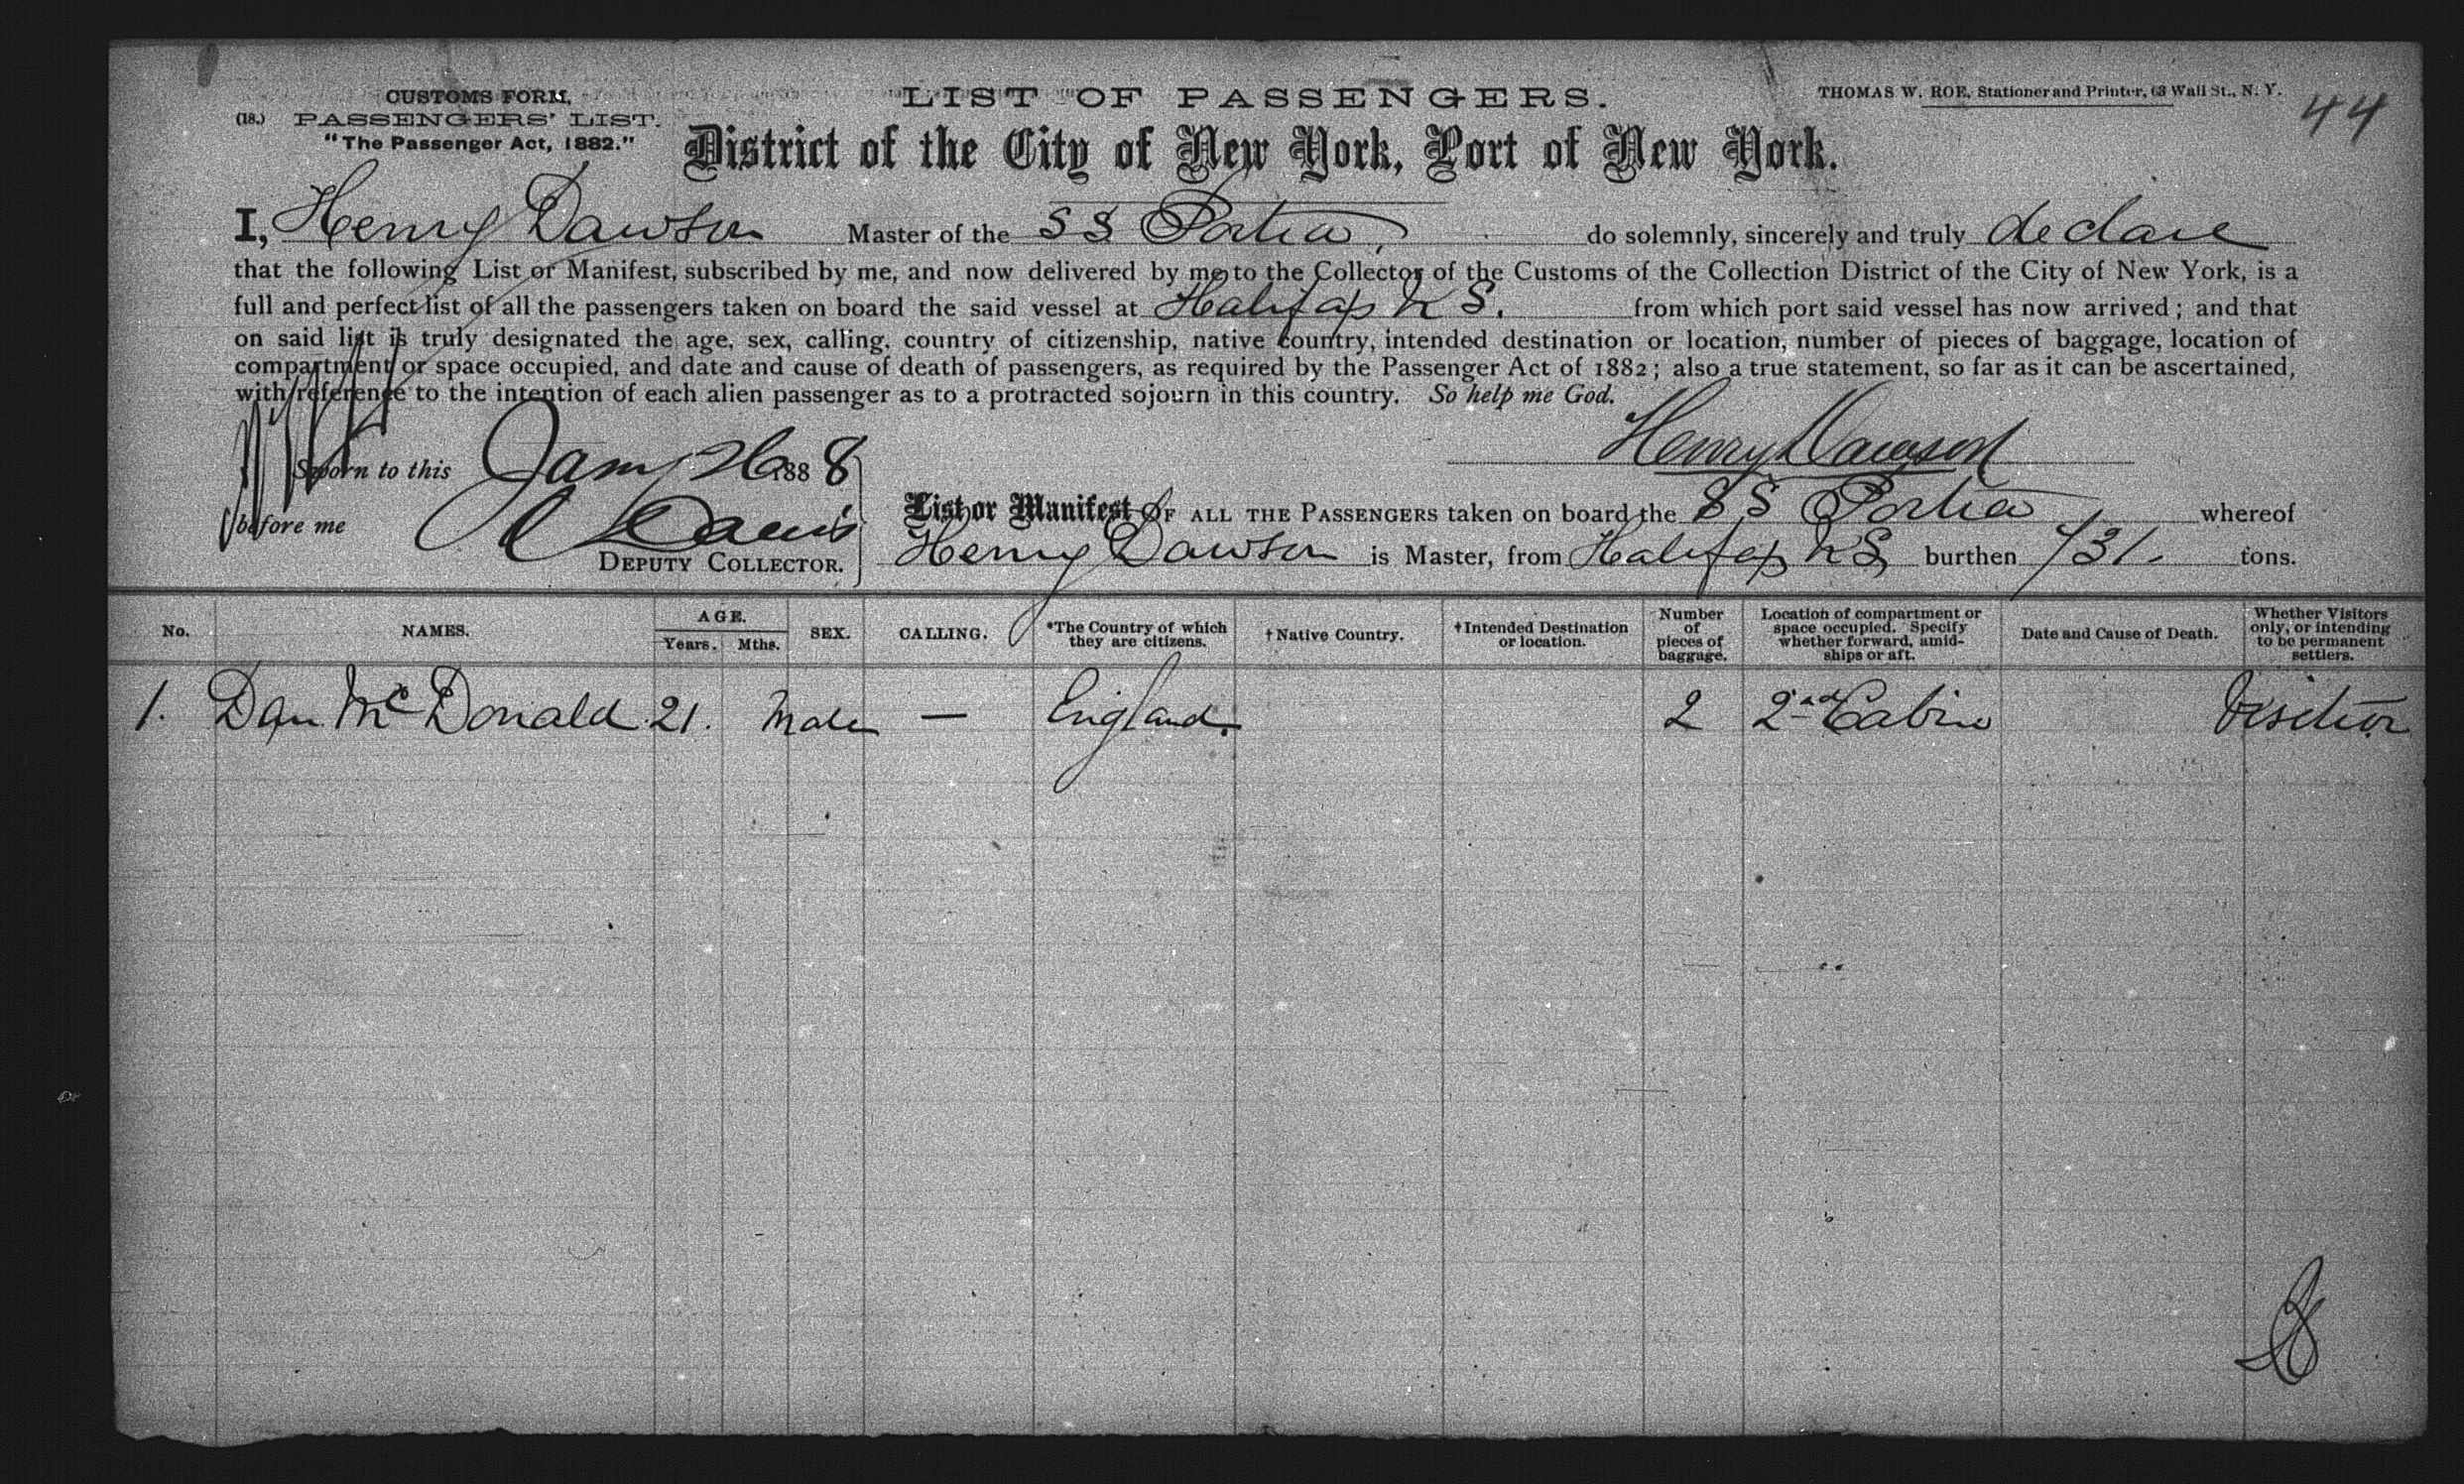 CUSTOMS FORM,
(18.) PASSENGERS' LIST.
"The Passenger Act, 1882."
LIST OF PASSENGERS.
THOMAS W. ROE, Stationer and Printer, 63 Wall St., N. Y.
44
District of the City of New York, Port of New York.
I, Henry Dawson Master of the SS Portia, do solemnly, sincerely and truly declare
that the following List or Manifest, subscribed by me, and now delivered by me to the Collector of the Customs of the Collection District of the City of New York, is a
full and perfect list of all the passengers taken on board the said vessel at Halifax NS. from which port said vessel has now arrived; and that
on said list is truly designated the age, sex, calling, country of citizenship, native country, intended destination or location, number of pieces of baggage, location of
compartment or space occupied, and date and cause of death of passengers, as required by the Passenger Act of 1882; also a true statement, so far as it can be ascertained,
with reference to the intention of each alien passenger as to a protracted sojourn in this country. So help me God.
Henry Dawson
Sworn to this Jany 26 1888
before me Davis
DEPUTY COLLECTOR.
List or Manifest OF ALL THE PASSENGERS taken on board the SS Portia whereof
Henry Dawson is Master, from Halifax NS burthen 731. tons.
No. NAMES. AGE. Years. Mths. SEX. CALLING. *The Country of which they are citizens. †Native Country. †Intended Destination or location. Number of pieces of baggage. Location of compartment or space occupied. Specify whether forward, amidships or aft. Date and Cause of Death. Whether Visitors only, or intending to be permanent settlers.
1. Dan McDonald 21. Male — England. 2 2nd Cabin Visitor